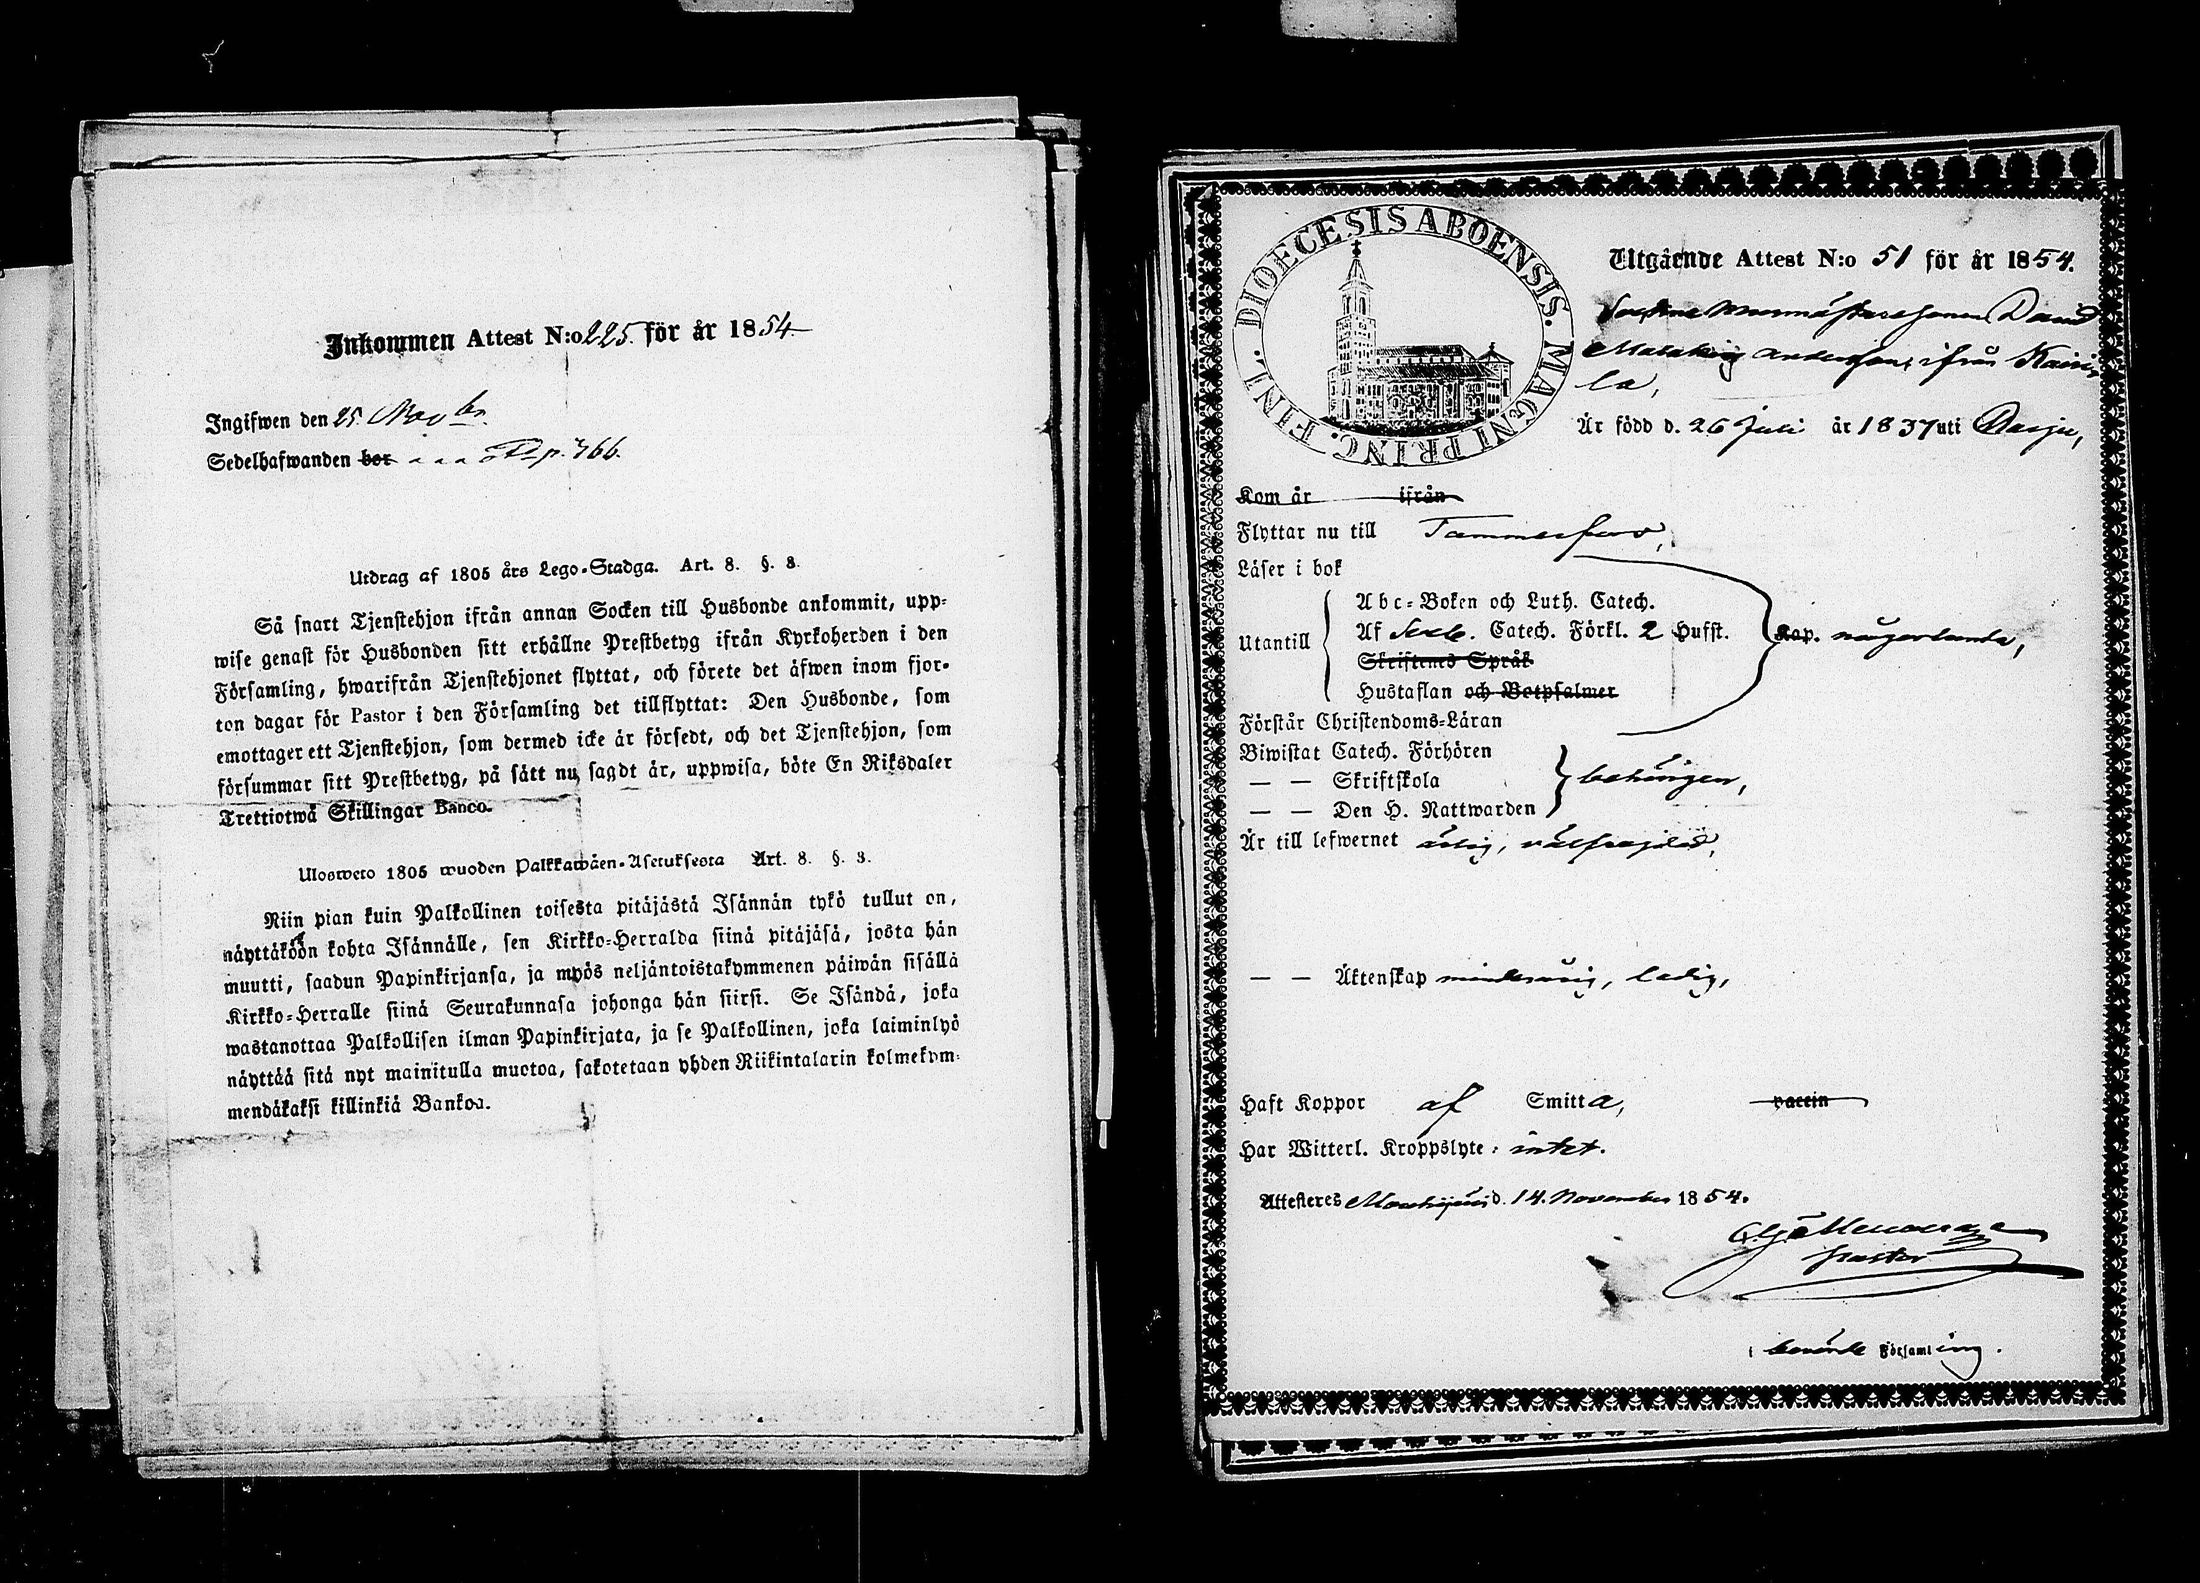 Inkommen Attest N:o 225. för år 1854
Ingifwen den 25 Nov br.
Sedelhafwanden bor p. 766.
Utdrag af 1805 års Lego-Stadga. Art. 8. §. 3.
Så snart Tjenstehjon ifrån annan Socken till Husbonde ankommit, upp-
wise genast för Husbonden sitt erhållne Prestbetyg ifrån Kyrkoherden i den
Församling, hwarifrån Tjenstehjonet flyttat, och förete det äfwen inom fjor-
ton dagar för Pastor i den Församling det tillflyttat: Den Husbonde, som
emottager ett Tjenstehjon, som dermed icke är försedt, och det Tjenstehjon, som
försummar sitt Prestbetyg, på sätt nu sagdt är, uppwisa, böte En Riksdaler
Trettiotwå Skillingar Banco.
Ulosweto 1805 wuoden Palkkawäen-Asetuksesta Art. 8. §. 3.
Niin pian kuin Palkollinen toisesta pitäjästä Isännän tykö tullut on,
näyttäköön kohta Isännälle, sen Kirkko-Herralda siinä pitäjäsä, josta hän
muutti, saadun Papinkirjansa, ja myös neljäntoistakymmenen päiwän sisällä
Kirkko-Herralle siinä Seurakunnasa johonga hän siirsi. Se Isändä, joka
wastanottaa Palkollisen ilman Papinkirjata, ja se Palkollinen, joka laiminlyö
näyttää sitä nyt mainitulla muotoa, sakotetaan yhden Riikintalarin kolmekym-
mendäkaksi killinkiä Bankoa.
DIOECESIS ABOENSIS. MAGNI PRINC. FINL.
Utgående Attest N:o 51 för år 1854.
murmästaresonen David
Malakias Andersson, ifrån Kairi-
la,
Är född d. 26 Juli år 1837 uti
Kom år ifrån
Flyttar nu till Tammerfors,
Läser i bok
Utantill
Abc-Boken och Luth. Catech.
Af Catech. Förkl. 2 Hufst.
Skriftenes Språk
Hustaflan och Botpsalmer
Kap. någorlunda,
Förstår Christendoms-Läran
Biwistat Catech. Förhören
— — Skriftskola
— — Den H. Nattwarden
behörigen,
Är till lefwernet ärlig, välfrejdad,
— — Äktenskap minderårig, ledig,
Haft Koppor af Smitta, vaccin
Har Witterl. Kroppslyte: intet.
Attesteres d. 14. November 1854.
Pastor
i Församling.